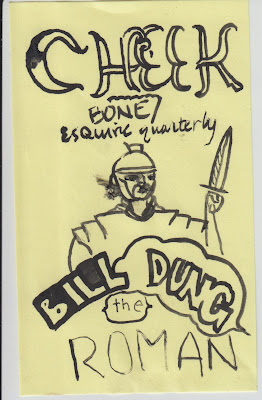 CHEEK
BONE
Esquire quarterly
BILL DUNG,
the
ROMAN